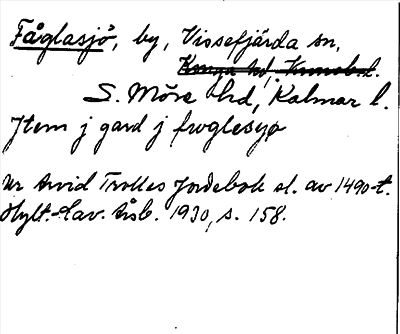 Fåglasjö, by, Vissefjärda sn,
Konga hd, Kronob. l.
S. Möre hd, Kalmar l.
Jtem j gard j froglesyo
Ur Arvid Trolles Jordebok sl. av 1490-t.
Hylt.-Cav. Årsb. 1930, s. 158.